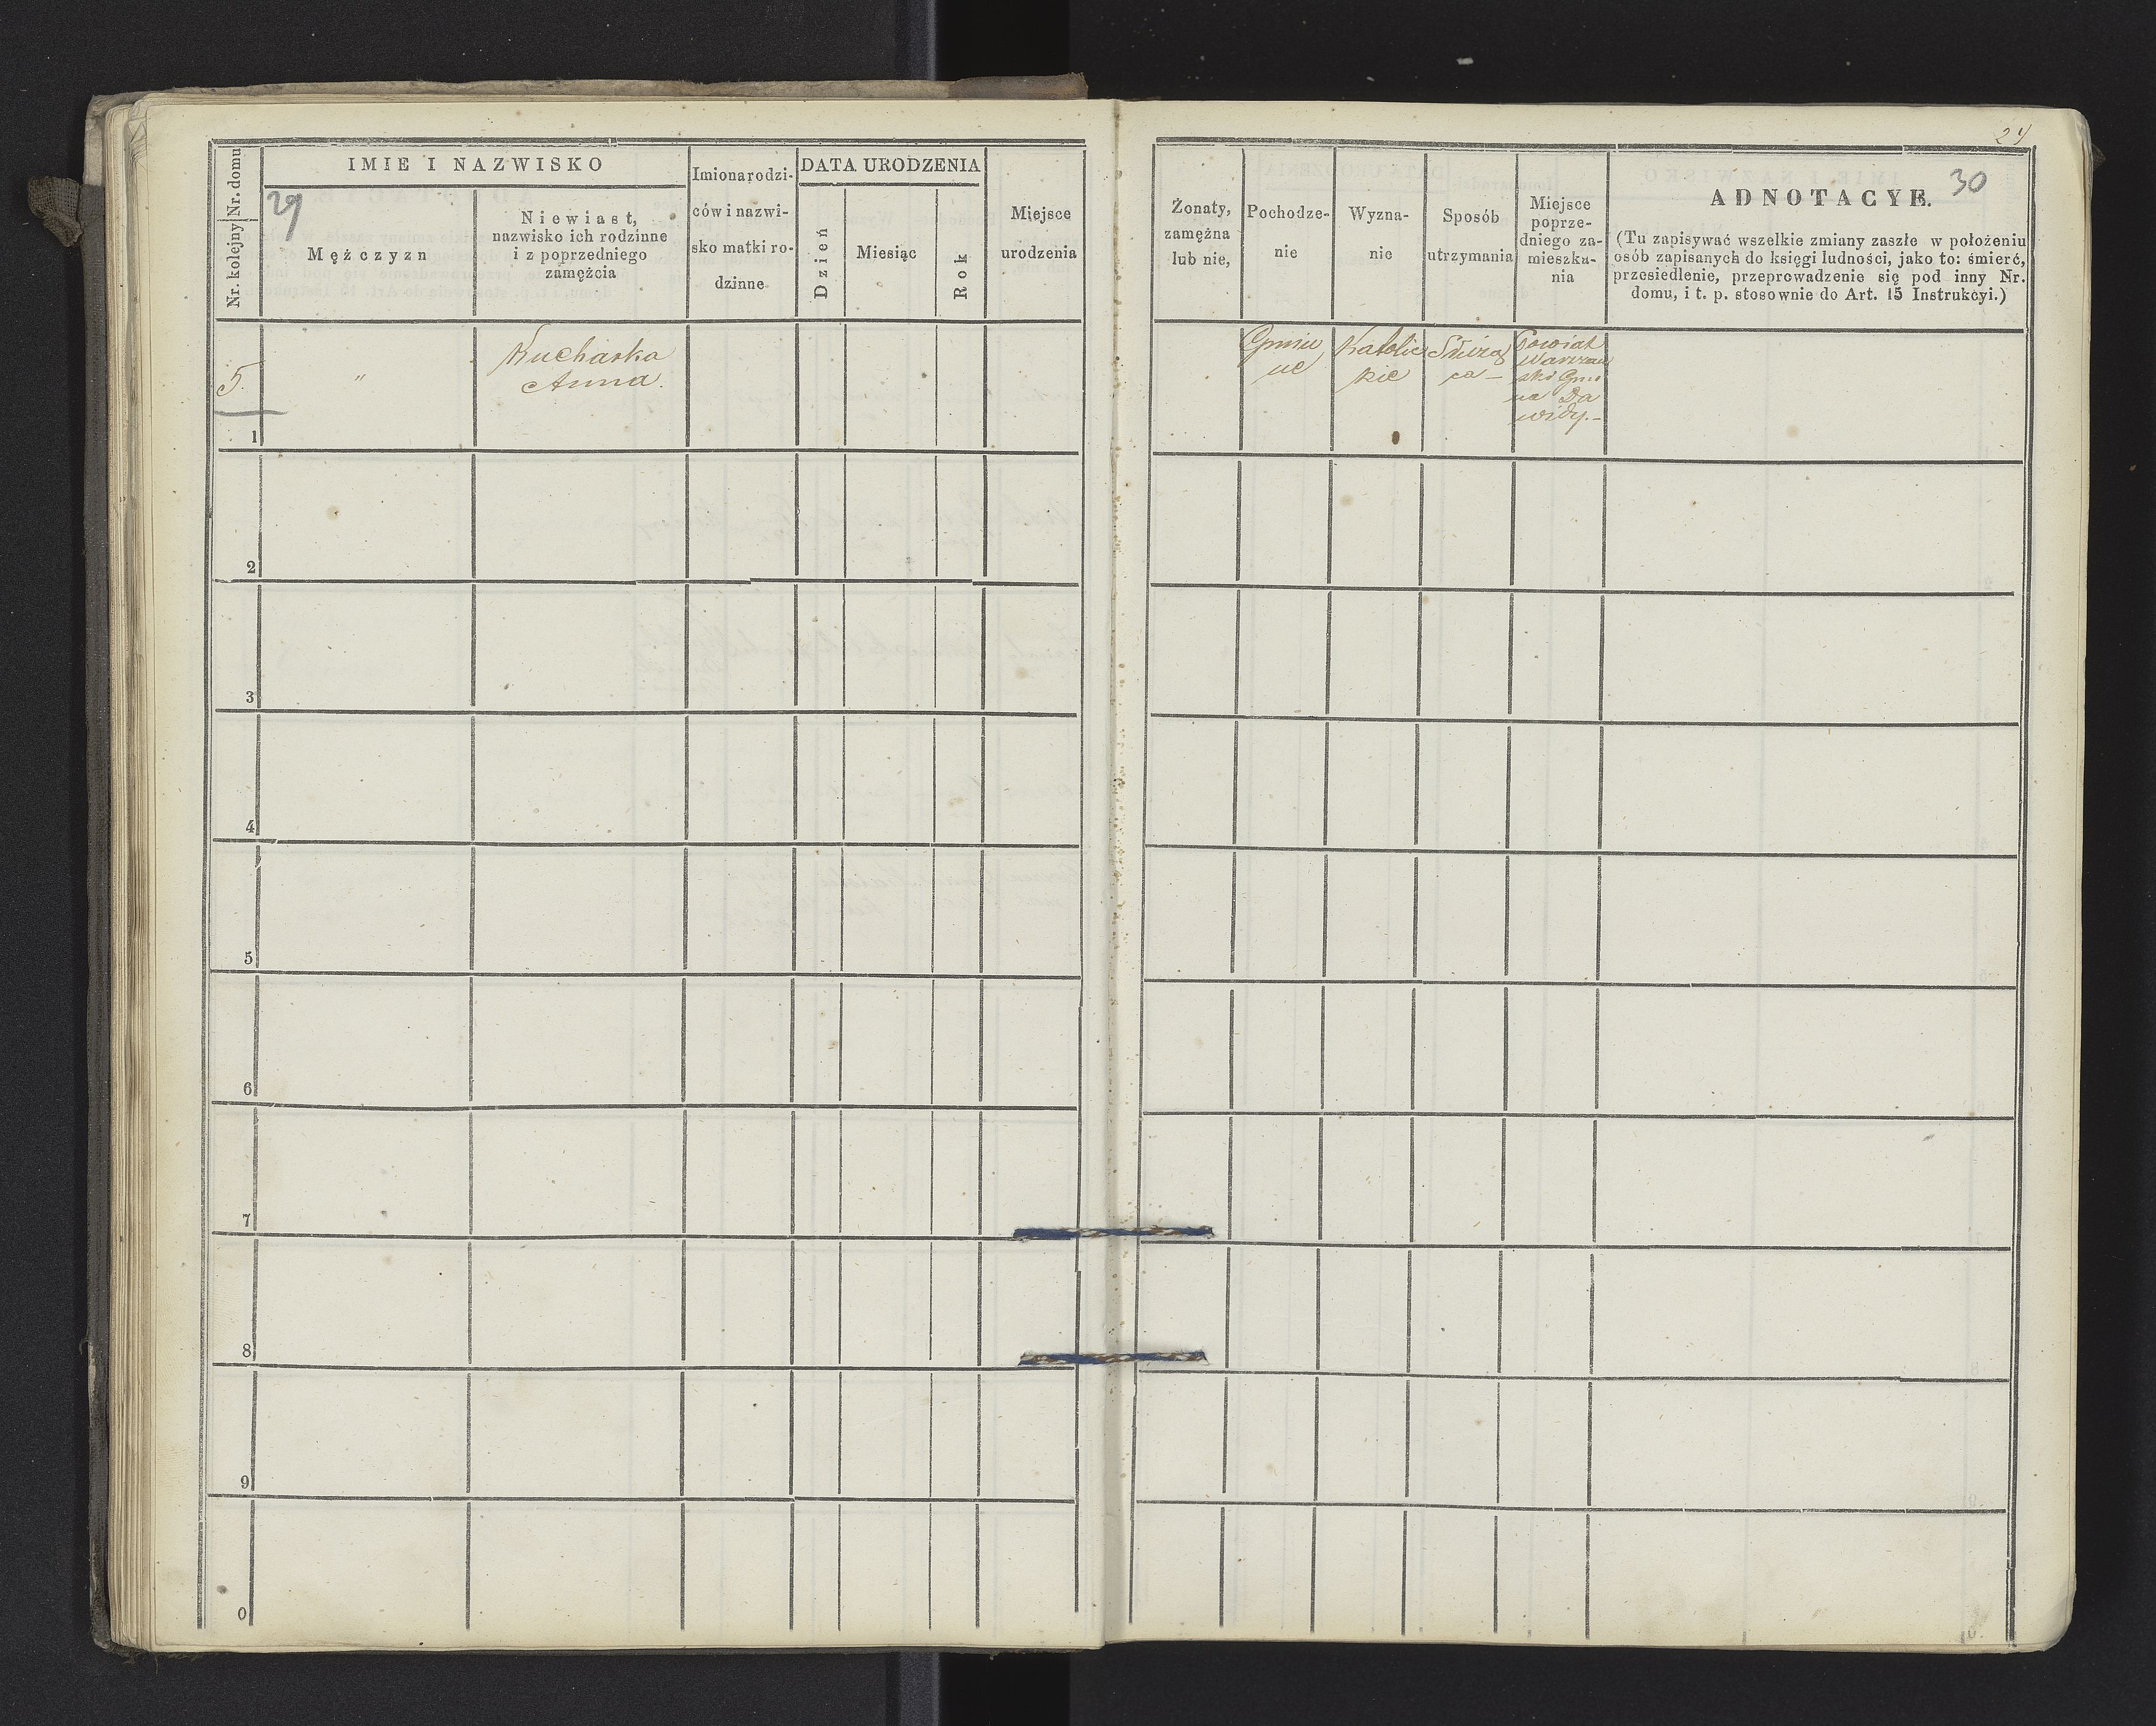 24
30
29
Nr. kolejny Nr. domu
IMIE I NAZWISKO
Mężczyzn
Niewiast,
nazwisko ich rodzinne
i z poprzedniego
zamężcia
Imiona rodzi-
ców i nazwi-
sko matki ro-
dzinne
DATA URODZENIA
Dzień
Miesiąc
Rok
Miejsce
urodzenia
Żonaty,
zamężna
lub nie,
Pochodze-
nie
Wyzna-
nie
Sposób
utrzymania
Miejsce
poprze-
dniego za-
mieszka-
nia
ADNOTACYE.
(Tu zapisywać wszelkie zmiany zaszłe w położeniu
osób zapisanych do księgi ludności, jako to: śmierć,
przesiedlenie, przeprowadzenie się pod inny Nr.
domu, i t. p. stosownie do Art. 15 Instrukcyi.)
5.
1
"
Kucharska
Anna.
Gmin
ne
Katolic
kie
Służą
ca –
Powiat
Warszaw
ski Gmi
na Da
widy.–
2
3
4
5
6
7
8
9
0